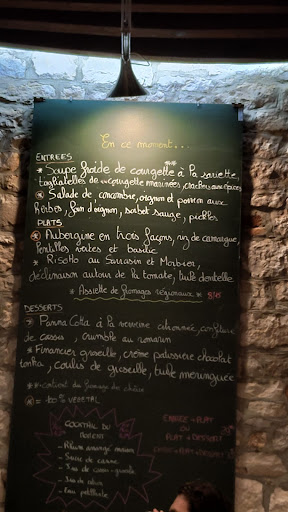 En ce moment...
ENTREES
* Soupe froide de courgette à la sariette,
tagliatelles de courgette marinées, crackers aux épices
Salade de concombre, oignon et poivron aux
herbes, foin d'oignon, sorbet sauge, pickles
PLATS
Aubergine en trois façons, riz de camargue,
lentilles vertes et basilic
* Risotto au Sarrasin et Morbier,
déclinaison autour de la tomate, tuile dentelle
* Assiette de fromages régionaux *
DESSERTS
Panna Cotta à la verveine citronnée, confiture
de cassis, crumble au romarin
* Financier groseille, crème patissière chocolat
tonka, coulis de groseille, tuile meringuée
contient du fromage de chèvre
= 100% VEGETAL
COCKTAIL DU
MOMENT
- Rhum arrangé maison
- Sucre de canne
- Jus de
- Jus de citron
- Eau pétillante
ENTREE + PLAT
OU
PLAT + DESSERT
ENTREE + PLAT + DESSERT